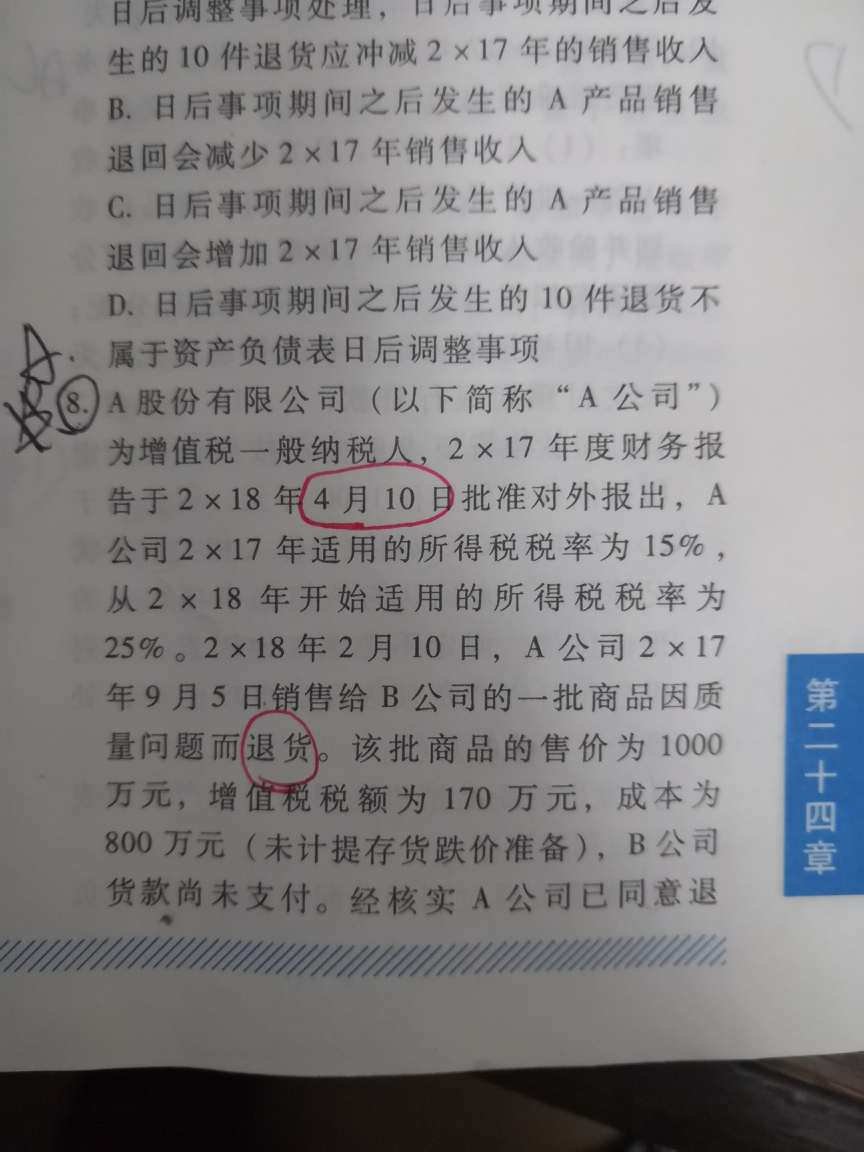 日后调整事项处理，日后事项期间之后发
生的10件退货应冲减2×17年的销售收入
B. 日后事项期间之后发生的A产品销售
退回会减少2×17年销售收入
C. 日后事项期间之后发生的A产品销售
退回会增加2×17年销售收入
D. 日后事项期间之后发生的10件退货不
属于资产负债表日后调整事项
A
8. A股份有限公司（以下简称“A公司”）
为增值税一般纳税人，2×17年度财务报
告于2×18年4月10日批准对外报出，A
公司2×17年适用的所得税税率为15%，
从2×18年开始适用的所得税税率为
25%。2×18年2月10日，A公司2×17
年9月5日销售给B公司的一批商品因质
量问题而退货。该批商品的售价为1000
万元，增值税税额为170万元，成本为
800万元（未计提存货跌价准备），B公司
货款尚未支付。经核实A公司已同意退
第二十四章